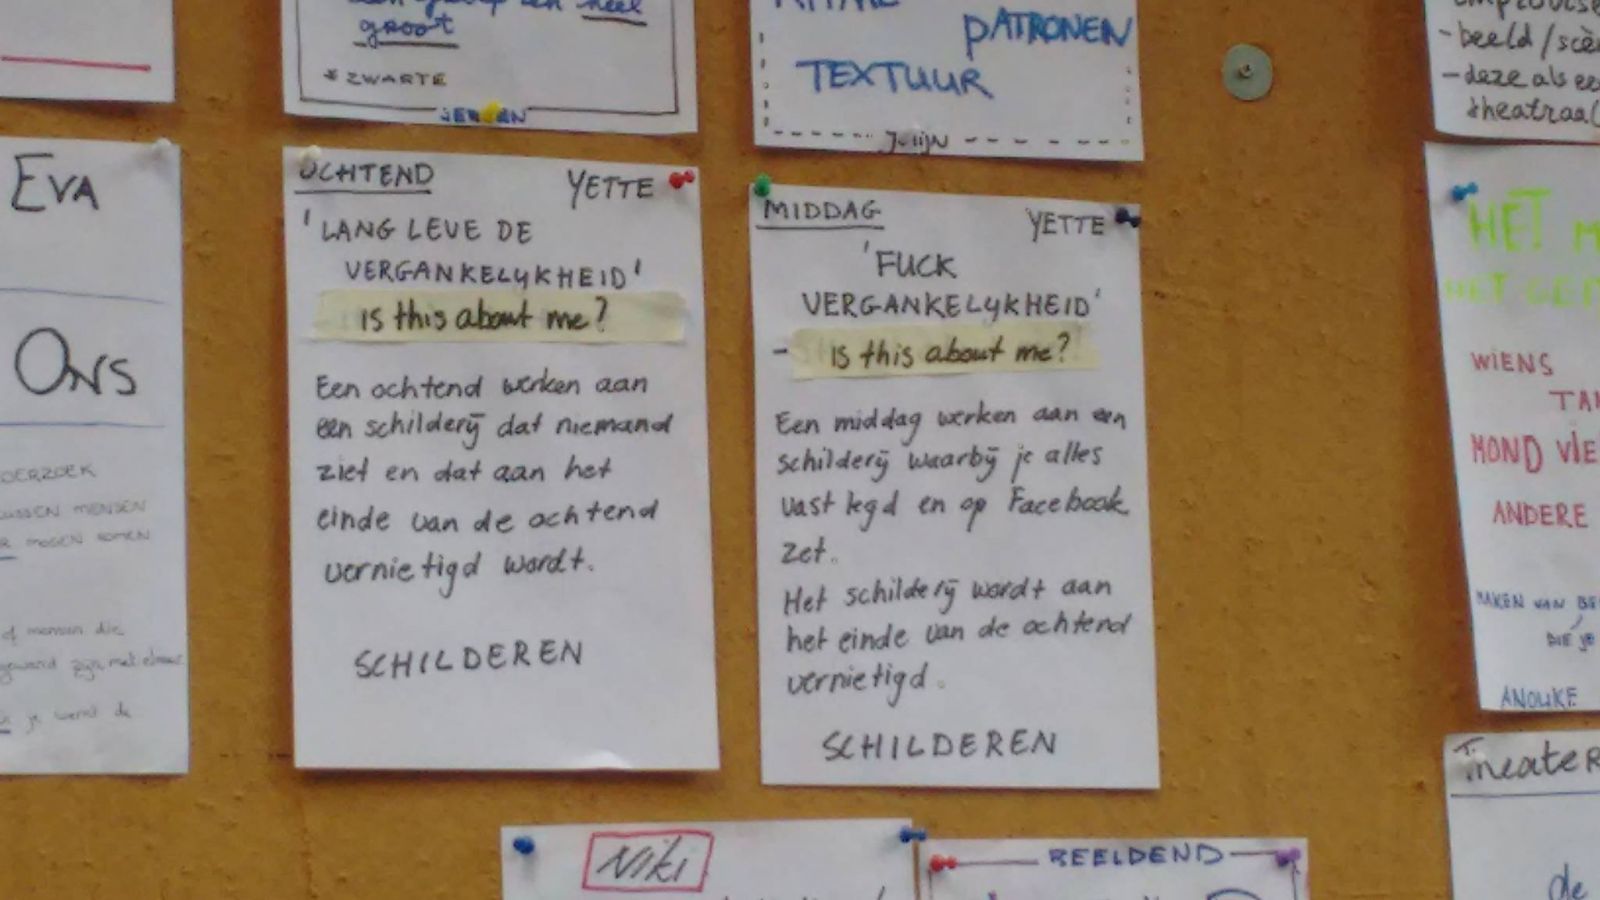 groot
* ZWARTE
JEROEN
PATRONEN
TEXTUUR
Julijn
- beeld / scè
- deze als ee
theatraal
EVA
ONS
OERZOEK
TUSSEN MENSEN
MOGEN KOMEN
of mensen die
je werd de
OCHTEND
YETTE
'LANG LEVE DE
VERGANKELYKHEID'
is this about me?
Een ochtend werken aan
een schilderij dat niemand
ziet en dat aan het
einde van de ochtend
vernietigd wordt.
SCHILDEREN
MIDDAG
YETTE
'FUCK
VERGANKELYKHEID'
- is this about me?
Een middag werken aan een
schilderij waarbij je alles
vast legd en op Facebook
zet.
Het schilderij wordt aan
het einde van de ochtend
vernietigd.
SCHILDEREN
HET M
WIENS
TAN
MOND VIE
ANDERE
MAKEN VAN BE
DIE je
ANOUKE
Theater
de
Niki
BEELDEND